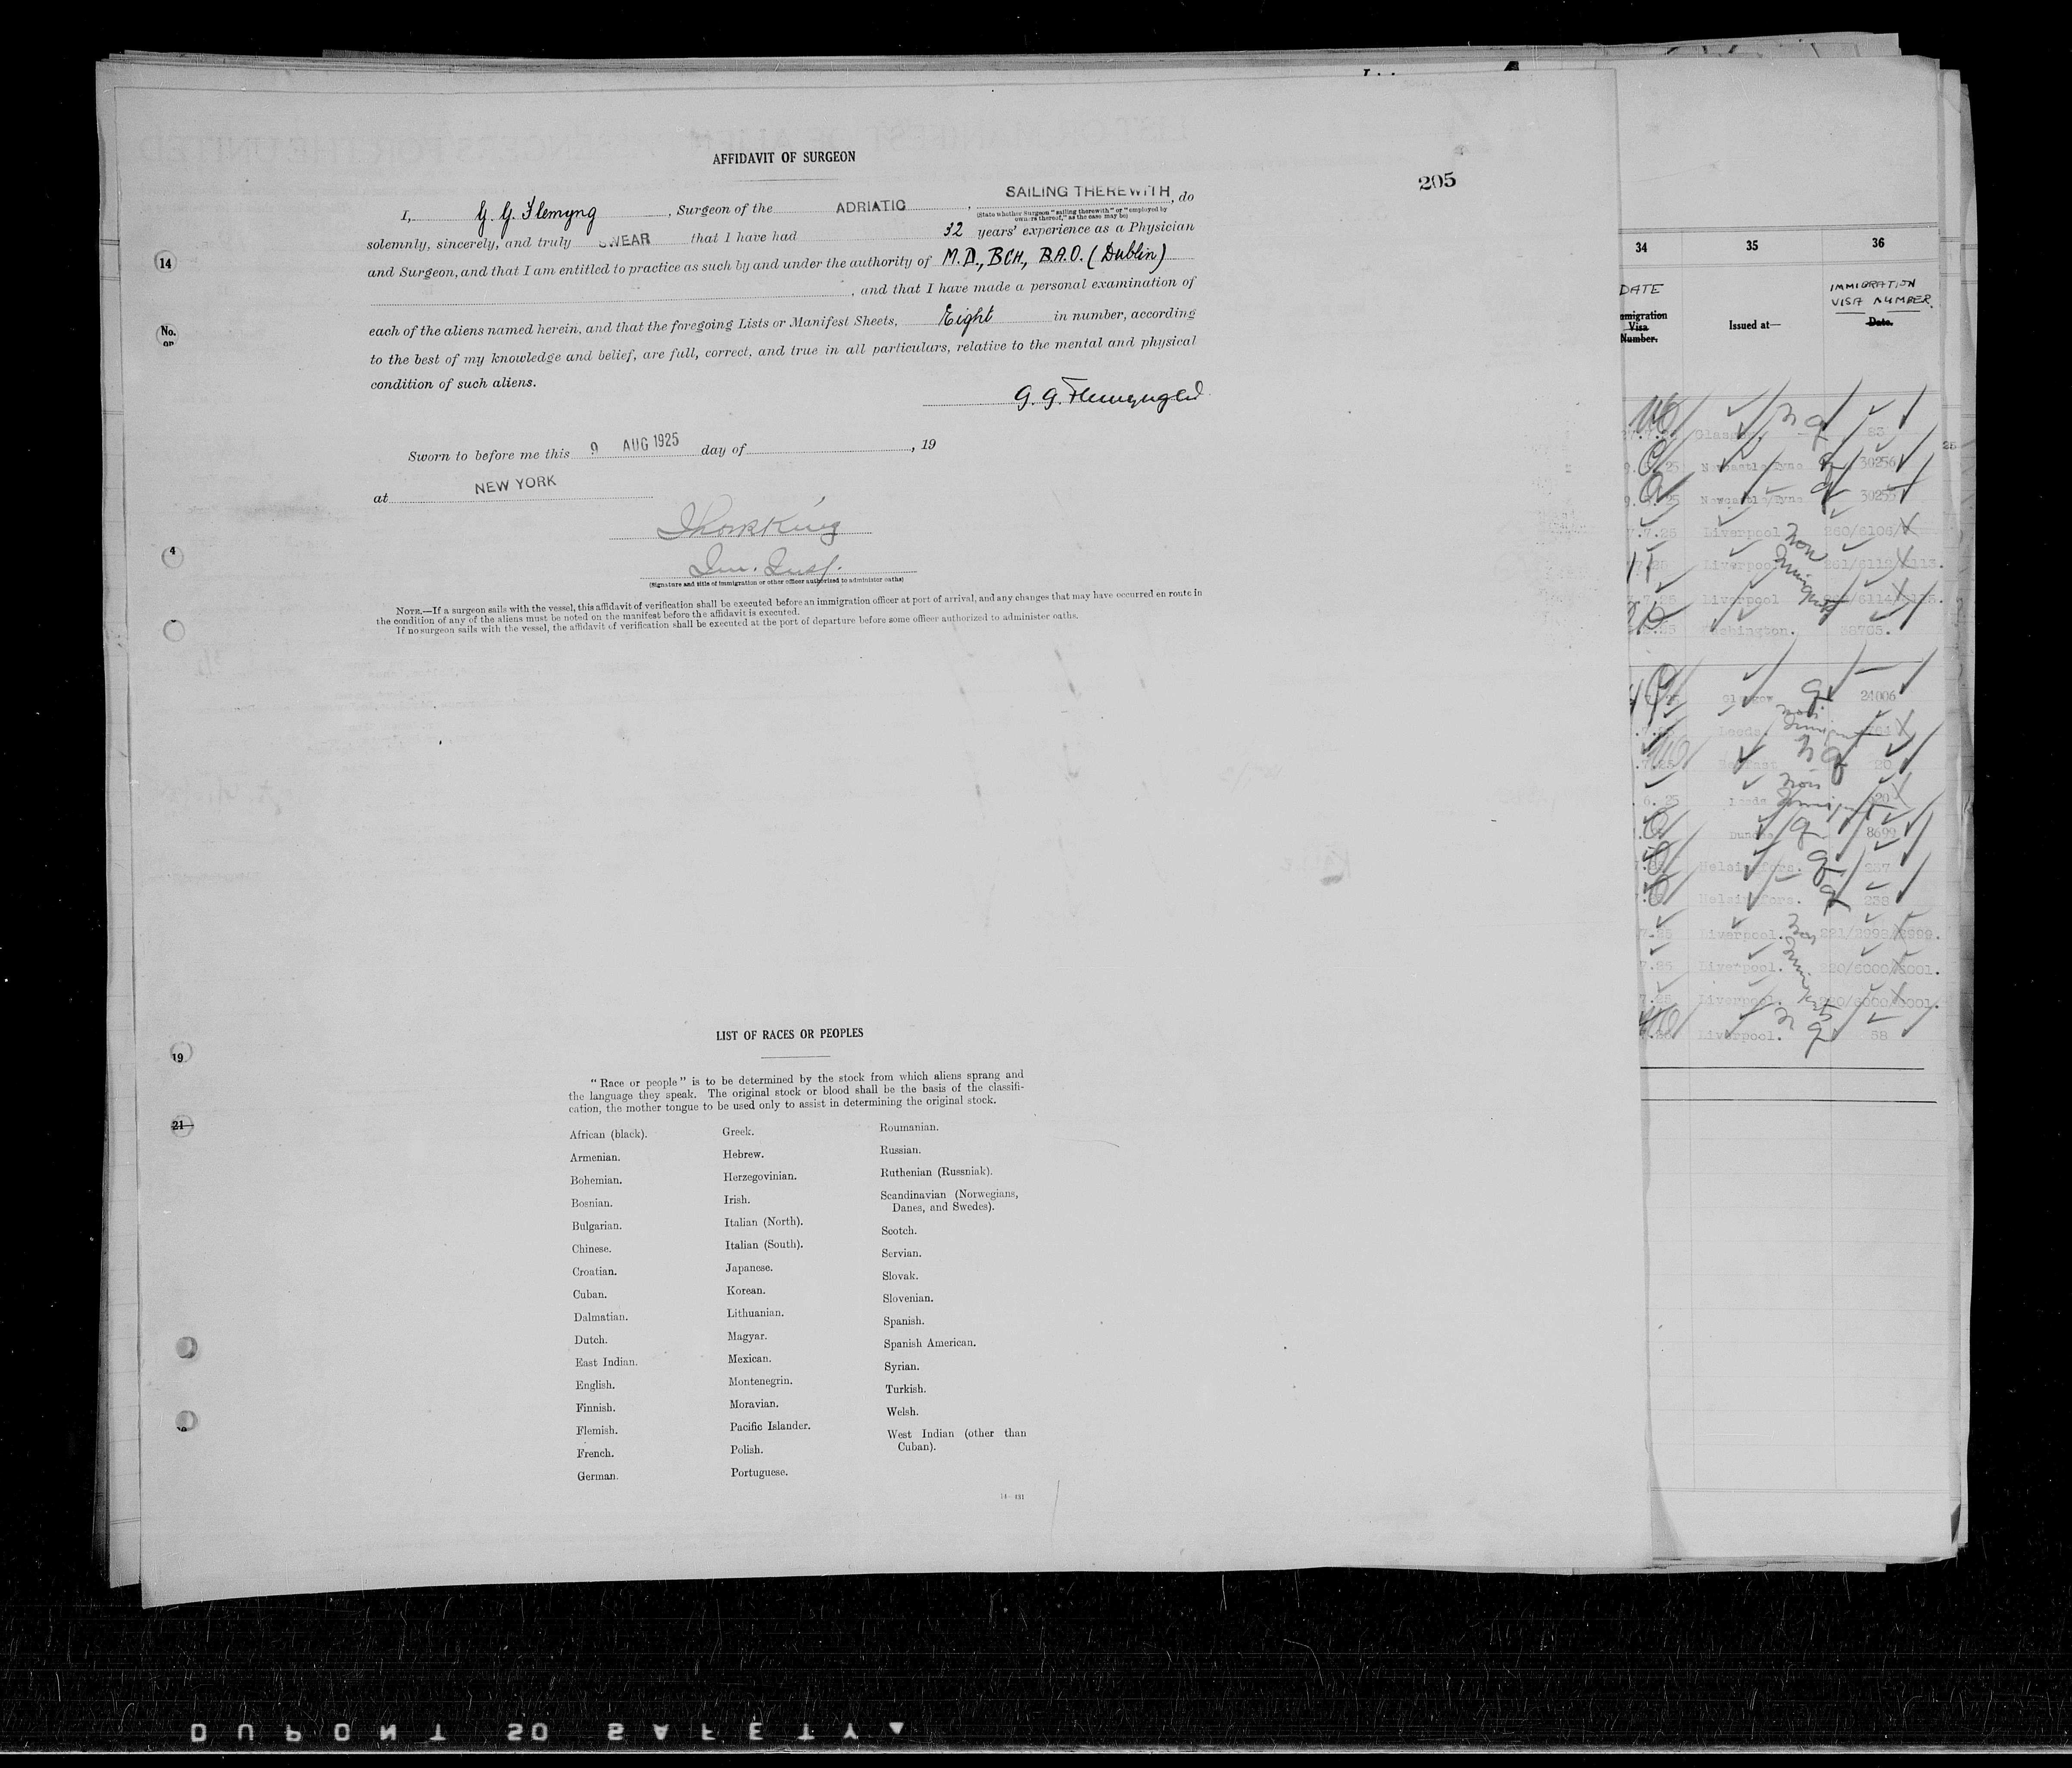 AFFIDAVIT OF SURGEON
205
SAILING THEREWITH
I, G. G. Flemyng, Surgeon of the ADRIATIC, do
(State whether Surgeon "sailing therewith" or "employed by
owners thereof," as the case may be)
solemnly, sincerely, and truly SWEAR that I have had 32 years' experience as a Physician
and Surgeon, and that I am entitled to practice as such by and under the authority of M.D., BCH., B.A.O. (Dublin)
, and that I have made a personal examination of
each of the aliens named herein, and that the foregoing Lists or Manifest Sheets, Eight in number, according
to the best of my knowledge and belief, are full, correct, and true in all particulars, relative to the mental and physical
condition of such aliens.
G. G. Flemyng
Sworn to before me this 9 AUG 1925 day of , 19
at NEW YORK
King
Im. Insp.
(Signature and title of immigration or other officer authorized to administer oaths)
NOTE.—If a surgeon sails with the vessel, this affidavit of verification shall be executed before an immigration officer at port of arrival, and any changes that may have occurred en route in
the condition of any of the aliens must be noted on the manifest before the affidavit is executed.
If no surgeon sails with the vessel, the affidavit of verification shall be executed at the port of departure before some officer authorized to administer oaths.
LIST OF RACES OR PEOPLES
"Race or people" is to be determined by the stock from which aliens sprang and
the language they speak. The original stock or blood shall be the basis of the classifi-
cation, the mother tongue to be used only to assist in determining the original stock.
African (black).
Armenian.
Bohemian.
Bosnian.
Bulgarian.
Chinese.
Croatian.
Cuban.
Dalmatian.
Dutch.
East Indian.
English.
Finnish.
Flemish.
French.
German.
Greek.
Hebrew.
Herzegovinian.
Irish.
Italian (North).
Italian (South).
Japanese.
Korean.
Lithuanian.
Magyar.
Mexican.
Montenegrin.
Moravian.
Pacific Islander.
Polish.
Portuguese.
Roumanian.
Russian.
Ruthenian (Russniak).
Scandinavian (Norwegians,
Danes, and Swedes).
Scotch.
Servian.
Slovak.
Slovenian.
Spanish.
Spanish American.
Syrian.
Turkish.
Welsh.
West Indian (other than
Cuban).
14
No.
4
19
21
34 35 36
DATE IMMIGRATION
VISA NUMBER.
Visa
Number.
Issued at—
Date.
Glasgow 83
Newcastle/Tyne 30256
Newcastle/Tyne 30255
Liverpool
Liverpool
Liverpool
Washington. 38765.
Glasgow 24006
Leeds.
Belfast 20
Leeds
Dundee 8699
Helsingfors. 237
Helsingfors. 238
Liverpool.
Liverpool.
Liverpool.
Liverpool. 58
DUPONT SO SAFETY